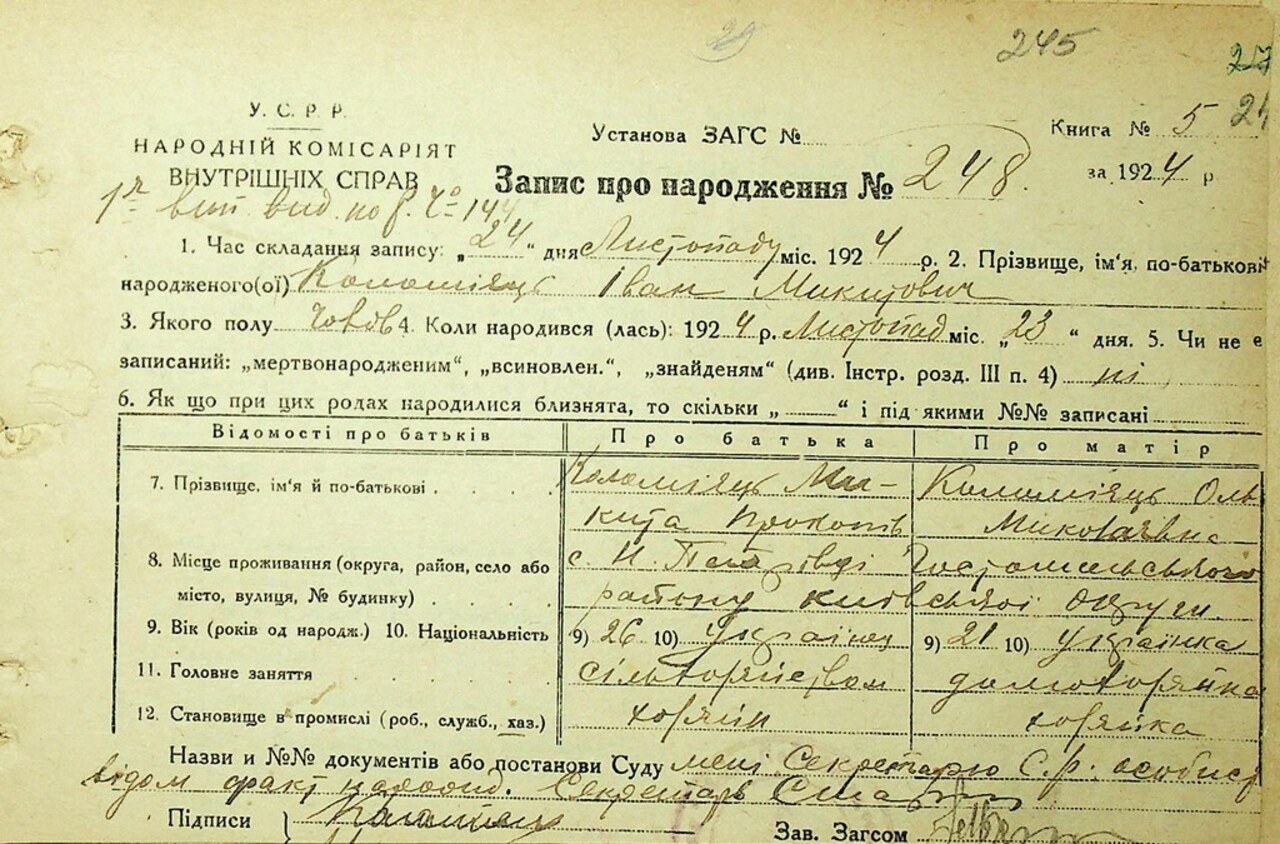 245
У. С. Р. Р.
НАРОДНІЙ КОМІСАРІЯТ
ВНУТРІШНІХ СПРАВ
Установа ЗАГС №
Книга № 5
Запис про народження № 248.
за 1924 р
1. Час складання запису: „24“ дня Листопаду міс. 1924 р. 2. Прізвище, ім'я, по-батькові
народженого(ої) Коломієць Іван Микитович
3. Якого полу Чолов 4. Коли народився (лась): 1924 р. Листопад міс. „23“ дня. 5. Чи не є
записаний: „мертвонародженим“, „всиновлен.“, „знайденям“ (див. Інстр. розд. III п. 4) ні
6. Як що при цих родах народилися близнята, то скільки „ “ і під якими №№ записані
Відомості про батьків Про батька Про матір
7. Прізвище, ім'я й по-батькові Коломієць Ми- Коломієць Оль
кита Прокопів Миколаївна
8. Місце проживання (округа, район, село або с. Н. Петрівці Гостомельського
місто, вулиця, № будинку) району Київської округи.
9. Вік (років од народж.) 10. Національність 9) 26 10) Українец 9) 21 10) Українка
11. Головне заняття домохозяйка
12. Становище в промислі (роб., служб., хаз.) хозяїн хозяйка
Назви и №№ документів або постанови Суду мені Секретарю С.р. особист
відом факт народ. Секретарь
Підписи Коломієць Зав. Загсом